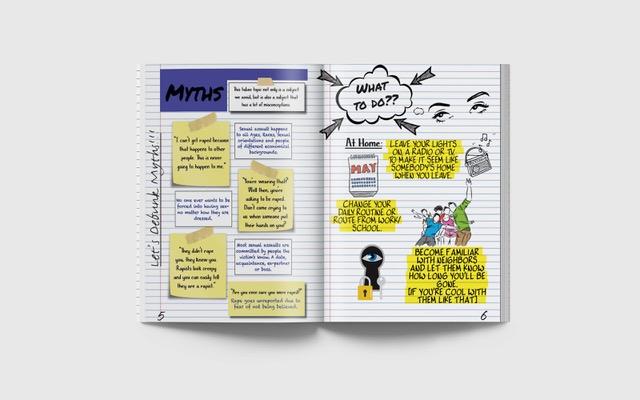 MYTHS
This taboo topic not only is a subject
we avoid, but is also a subject that
has a lot of misconceptions.
Let's Debunk Myths!!!
"I can't get raped because
that happens to other
people. This is never
going to happen to me."
Sexual assault happens
to all Ages, Races, Sexual
orientations and people
of different economical
backgrounds.
"You're wearing that?
Well then, you're
asking to be raped.
Don't come crying to
us when someone put
their hands on you"
No one ever wants to be
forced into having sex-
no matter how they are
dressed.
"They didn't rape
you, did they know you
Rapists look creepy
and you can easily tell
they are a rapist."
Most sexual assaults are
committed by people the
victim's know. A date,
acquaintance, ex-partner
or boss.
"Are you ever sure you were raped?"
Rape goes unreported due to
fear of not being believed.
5
WHAT
TO DO??
At Home:
LEAVE YOUR LIGHTS
ON, A RADIO OR TV.
TO MAKE IT SEEM LIKE
SOMEBODY'S HOME
WHEN YOU LEAVE.
MAY
CHANGE YOUR
DAILY ROUTINE OR
ROUTE FROM WORK/
SCHOOL.
BECOME FAMILIAR
WITH NEIGHBORS
AND LET THEM KNOW
HOW LONG YOU'LL BE
GONE.
[IF YOU'RE COOL WITH
THEM LIKE THAT]
6